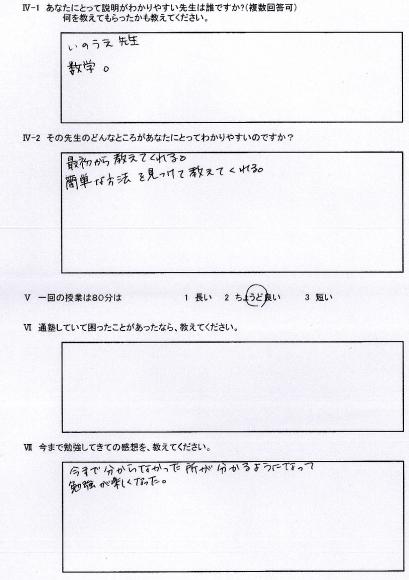 Ⅳ-1 あなたにとって説明がわかりやすい先生は誰ですか?(複数回答可)
何を教えてもらったかも教えてください。
いのうえ先生
数学。
Ⅳ-2 その先生のどんなところがあなたにとってわかりやすいのですか?
最初から教えてくれる。
簡単な方法を見つけて教えてくれる。
Ⅴ 一回の授業は80分は 1 長い 2 ちょうど良い 3 短い
Ⅵ 通塾していて困ったことがあったなら、教えてください。
Ⅶ 今まで勉強してきての感想を、教えてください。
今まで分からなかった所が分かるようになって
勉強が楽しくなった。